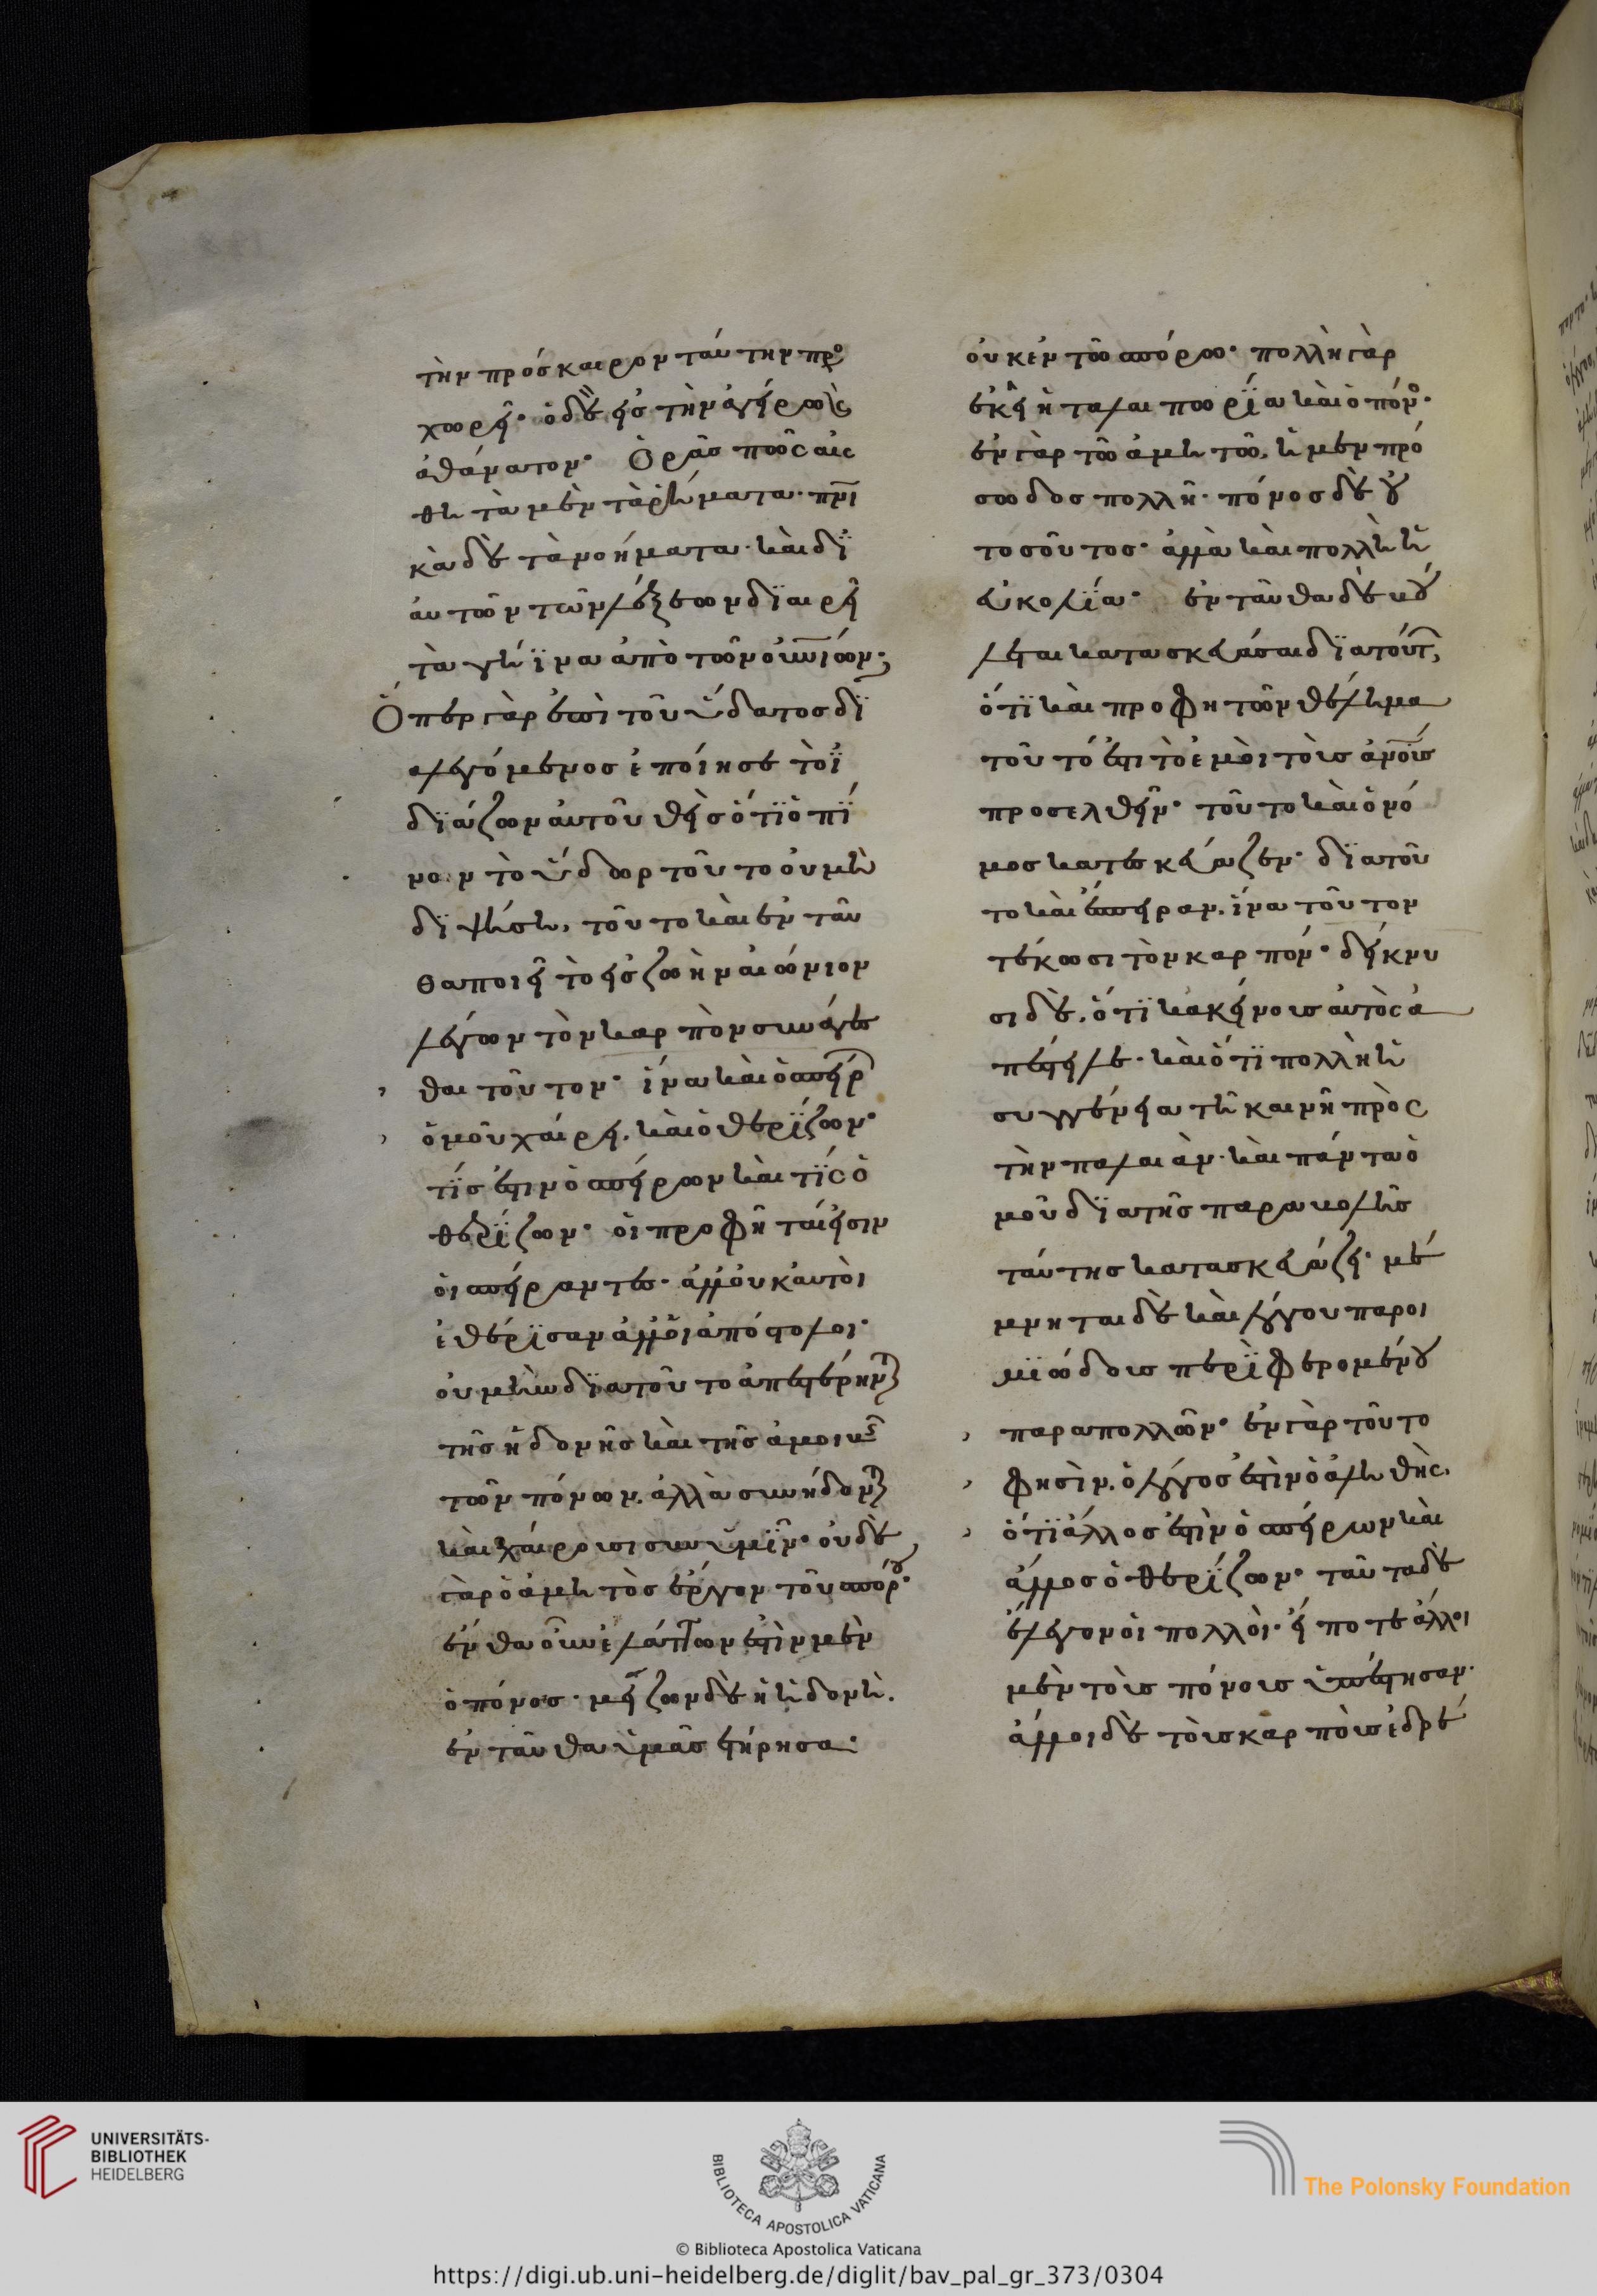 τὴν πρόσκαιρον ταύτην προ
χωρεῖ· ὁ δὲ εἰς τὴν ἀγήρω κ
ἀθάνατον· Ὁρᾷς πῶς αἰσ
θη τὰ μὲν τὰ ῥήματα· πνι
κὰ δὲ τὰ νοήματα· καὶ δϊ
αὐτῶν τῶν λέξεων διαιρεῖ
τὰ γήϊνα ἀπὸ τῶν οὐνίων·
Ὅπερ γὰρ ἐπὶ τοῦ ὕδατος δϊ
αλεγόμενος ἐποίησε τὸ ἴ
διάζων αὐτοῦ θεὶς ὅτι ὁ πί
νων τὸ ὕδωρ τοῦτο οὐ μὴ
διψήση, τοῦτο καὶ ἐνταῦ
θα ποιεῖ τὸ εἰς ζωὴν αἰώνιον
λέγων τὸν καρπὸν συνάγεσ
θαι τοῦτον· ἵνα καὶ ὁ σπείρ
ὁμοῦ χαίρει, καὶ ὁ θερίζων·
τίς ἐστιν ὁ σπείρων καὶ τίς ὁ
θερίζων· οἱ προφῆται εἰσιν
οἱ σπείραντες· ἀλλ' οὐκ αὐτοὶ
ἐθέρισαν ἀλλ' οἱ ἀπόστολοι·
οὐ μὴν διὰ τοῦτο ἀπεστέρην
τῆς ἡδονῆς καὶ τῆς ἀμοιβ
τῶν πόνων. ἀλλὰ συνήδον
καὶ χαίρουσι συν ὑμῖν· οὐδὲ
γὰρ ὁ ἀμητὸς ἔργον τοῦ σπόρου·
ἔνθα οὖν ἐλάττων ἐστὶν μὲν
ὁ πόνος· μείζων δὲ ἡ ἡδονὴ.
ἐνταῦθα ὑμᾶς ἐτήρησα·
οὐκ ἐν τῶ σπόρω· πολλὴ γὰρ
ἐκεῖ ἡ ταλαιπωρία καὶ ὁ πόνο·
ἐν γὰρ τῶ ἀμητῶ, ἡ μὲν πρό
σοδος πολλὴ· πόνος δὲ οὐ
τοσοῦτος· ἀλλὰ καὶ πολλὴ ἡ
εὐκολία· ἐνταῦθα δὲ βού
λεται κατασκευάσαι διὰ τούτ,
ὅτι καὶ προφητῶν θέλημα
τοῦτό ἐστι τὸ ἐμοὶ τοὺς ἀνοὺς
προσελθεῖν· τοῦτο καὶ ὁ νό
μος κατεσκεύαζεν· διὰ τοῦ
το καὶ ἔσπειραν, ἵνα τοῦτον
τέκωσι τὸν καρπόν· δείκνυ
σι δὲ, ὅτι κακείνους αὐτὸς ἀ
πέστειλε· καὶ ὅτι πολλὴ ἡ
συγγένεια τῆ καινῆ πρὸς
τὴν παλαιὰν· καὶ πάντα ὁ
μοῦ διὰ τῆς παραβολῆς
ταύτης κατασκευάζει· μέ
μνηται δὲ καὶ λόγου παροι
μιώδους περιφερομένου
παρὰ πολλῶν· ἐν γὰρ τοῦτο
φησὶν, ὁ λόγος ἐστὶν ὁ ἀληθὴς,
ὅτι ἄλλος ἐστὶν ὁ σπείρων καὶ
ἄλλος ὁ θερίζων· ταῦτα δὲ
ἔλεγον οἱ πολλοὶ· εἴ ποτε ἄλλοι
μὲν τοὺς πόνους ὑπέστησαν·
ἄλλοι δὲ τοὺς καρποὺς ἐδρέ
UNIVERSITÄTS-
BIBLIOTHEK
HEIDELBERG
BIBLIOTECA APOSTOLICA VATICANA
© Biblioteca Apostolica Vaticana
The Polonsky Foundation
https://digi.ub.uni-heidelberg.de/diglit/bav_pal_gr_373/0304